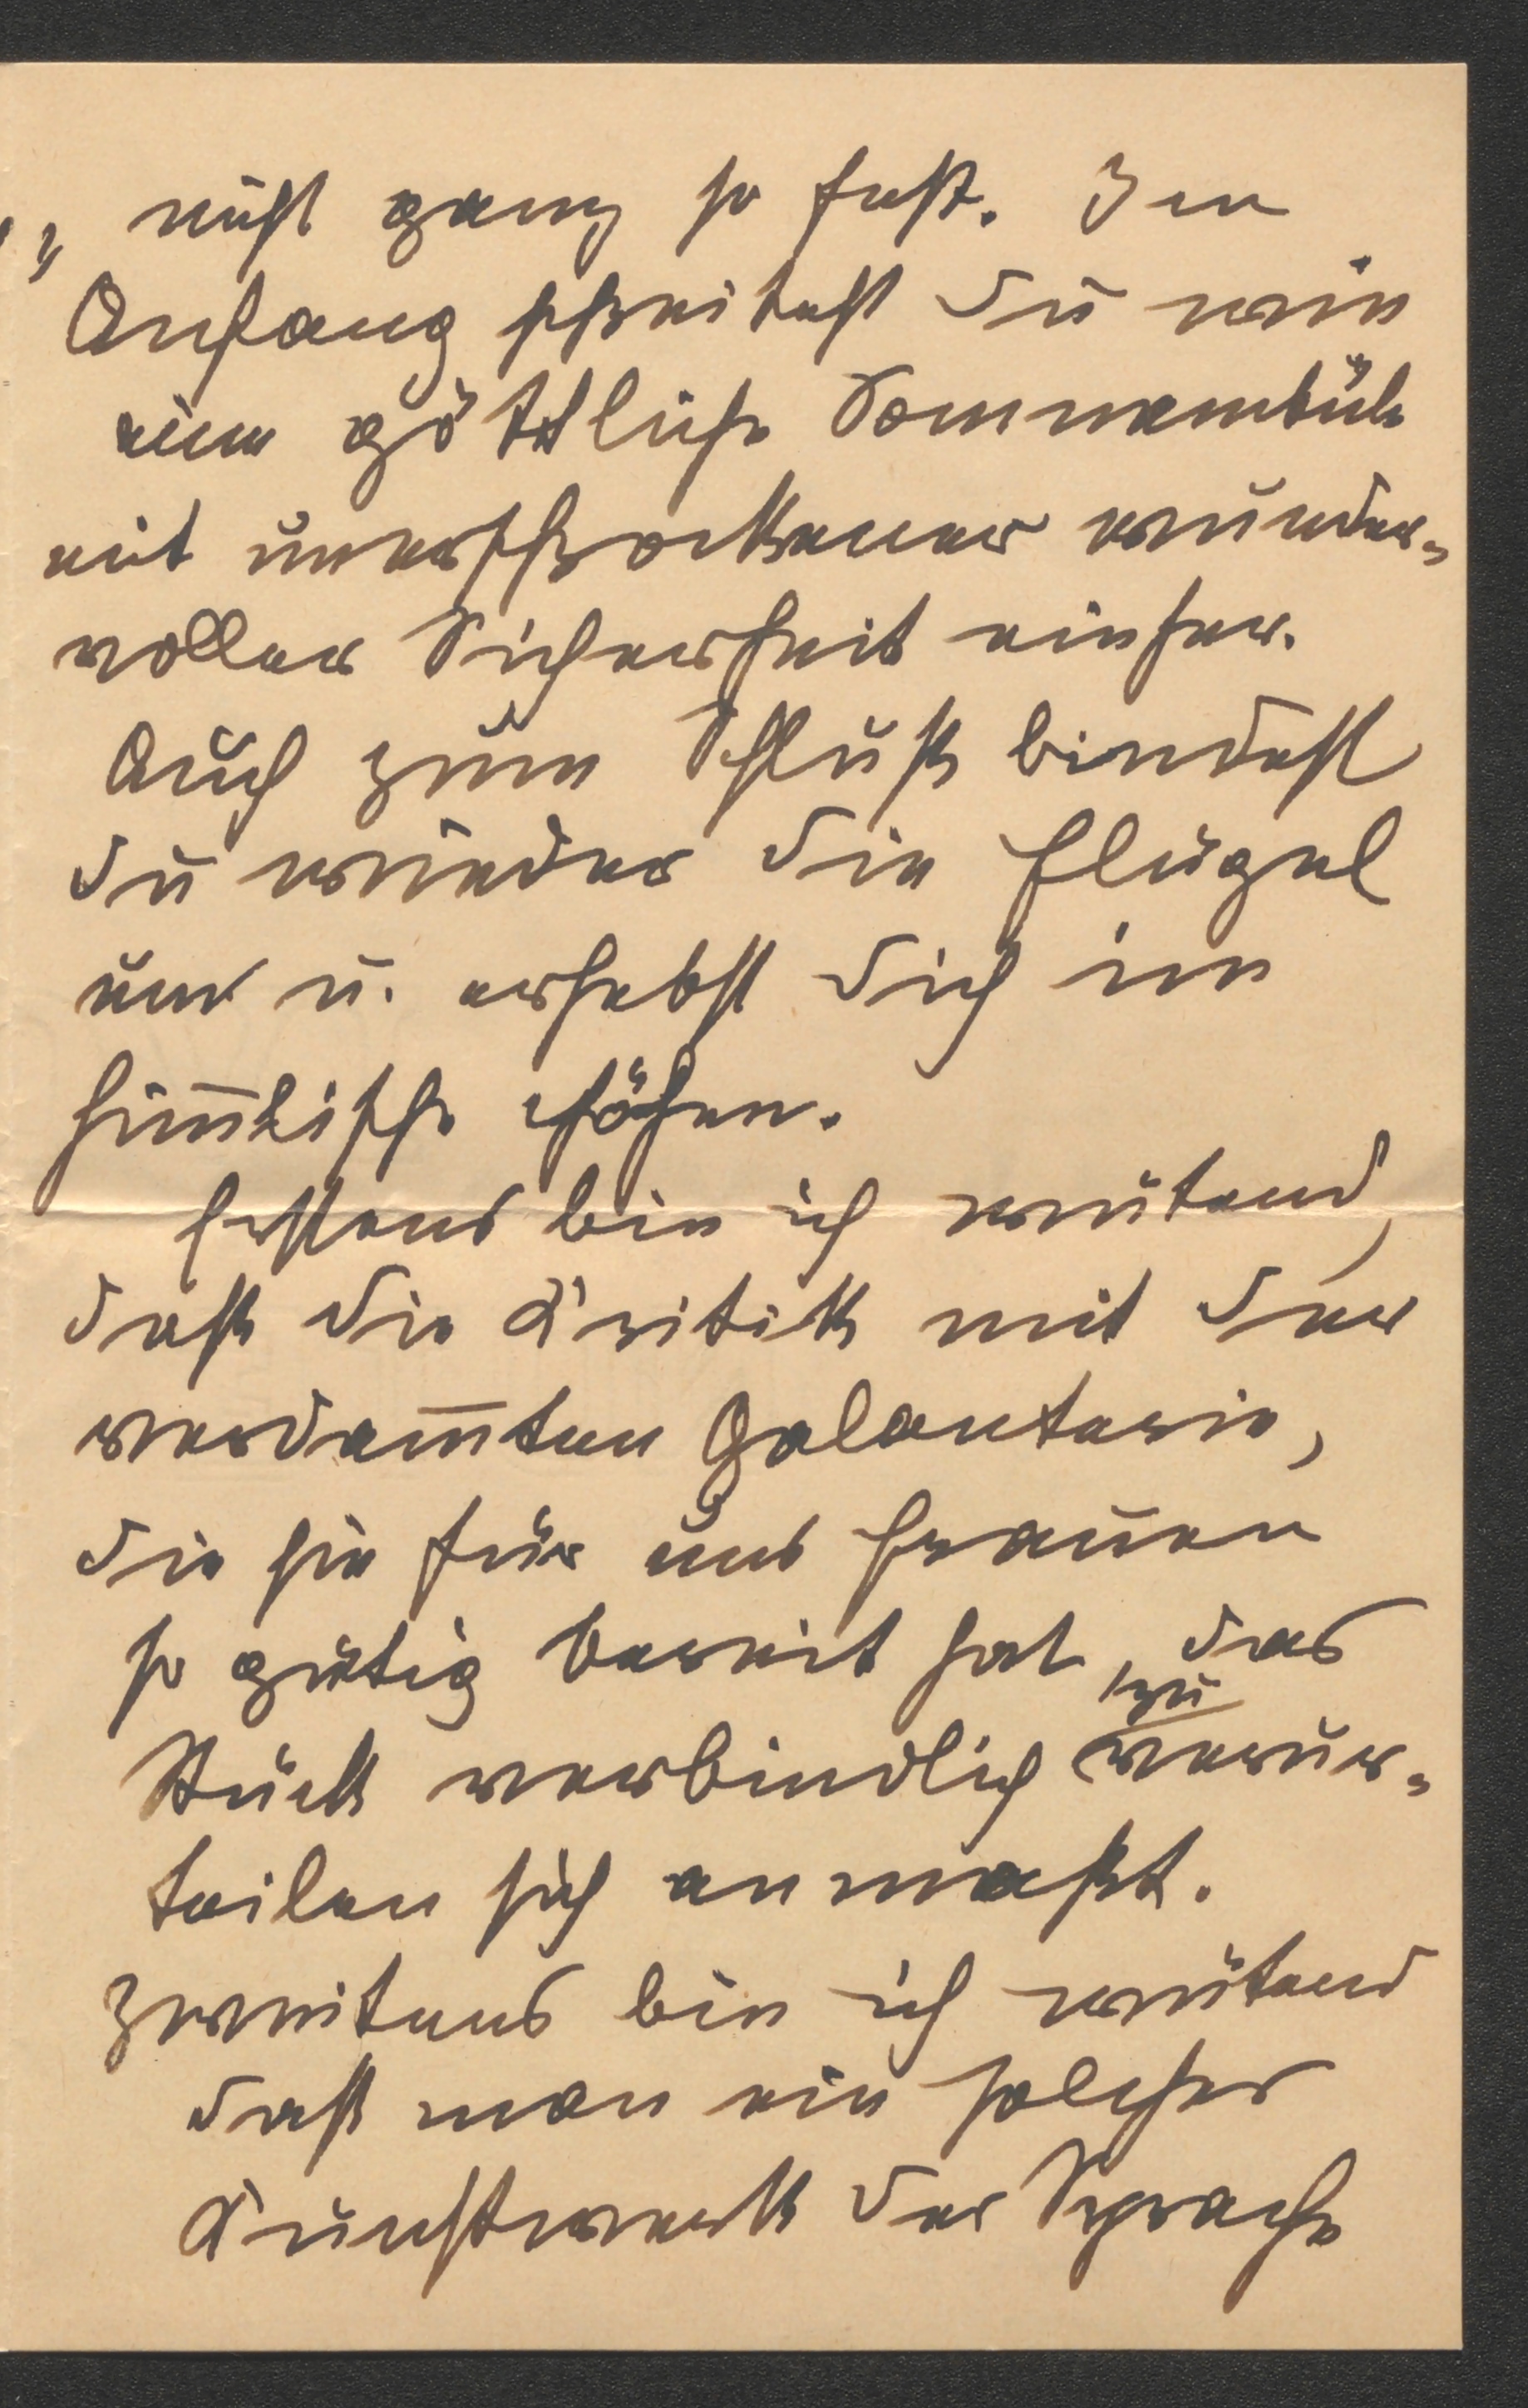 nicht ganz so fest. Im
Anfang schreitest du wie
eine göttliche Somnambüle
mit unerschrockener wunder-
voller Sicherheit einher.
Auch zum Schluß bindest
du wieder die Flügel
um u. erhebst dich in
him̅lische Höhen.
Erstens bin ich wütend,
daß die Kritik mit der
verdam̅ten Galanterie,
die sie für uns Frauen
so gütig bereit hat, das
Stück verbindlich zu verur-
teilen sich anmaßt.
Zweitens bin ich wütend
daß man ein solches
Kunstwerk der Sprache